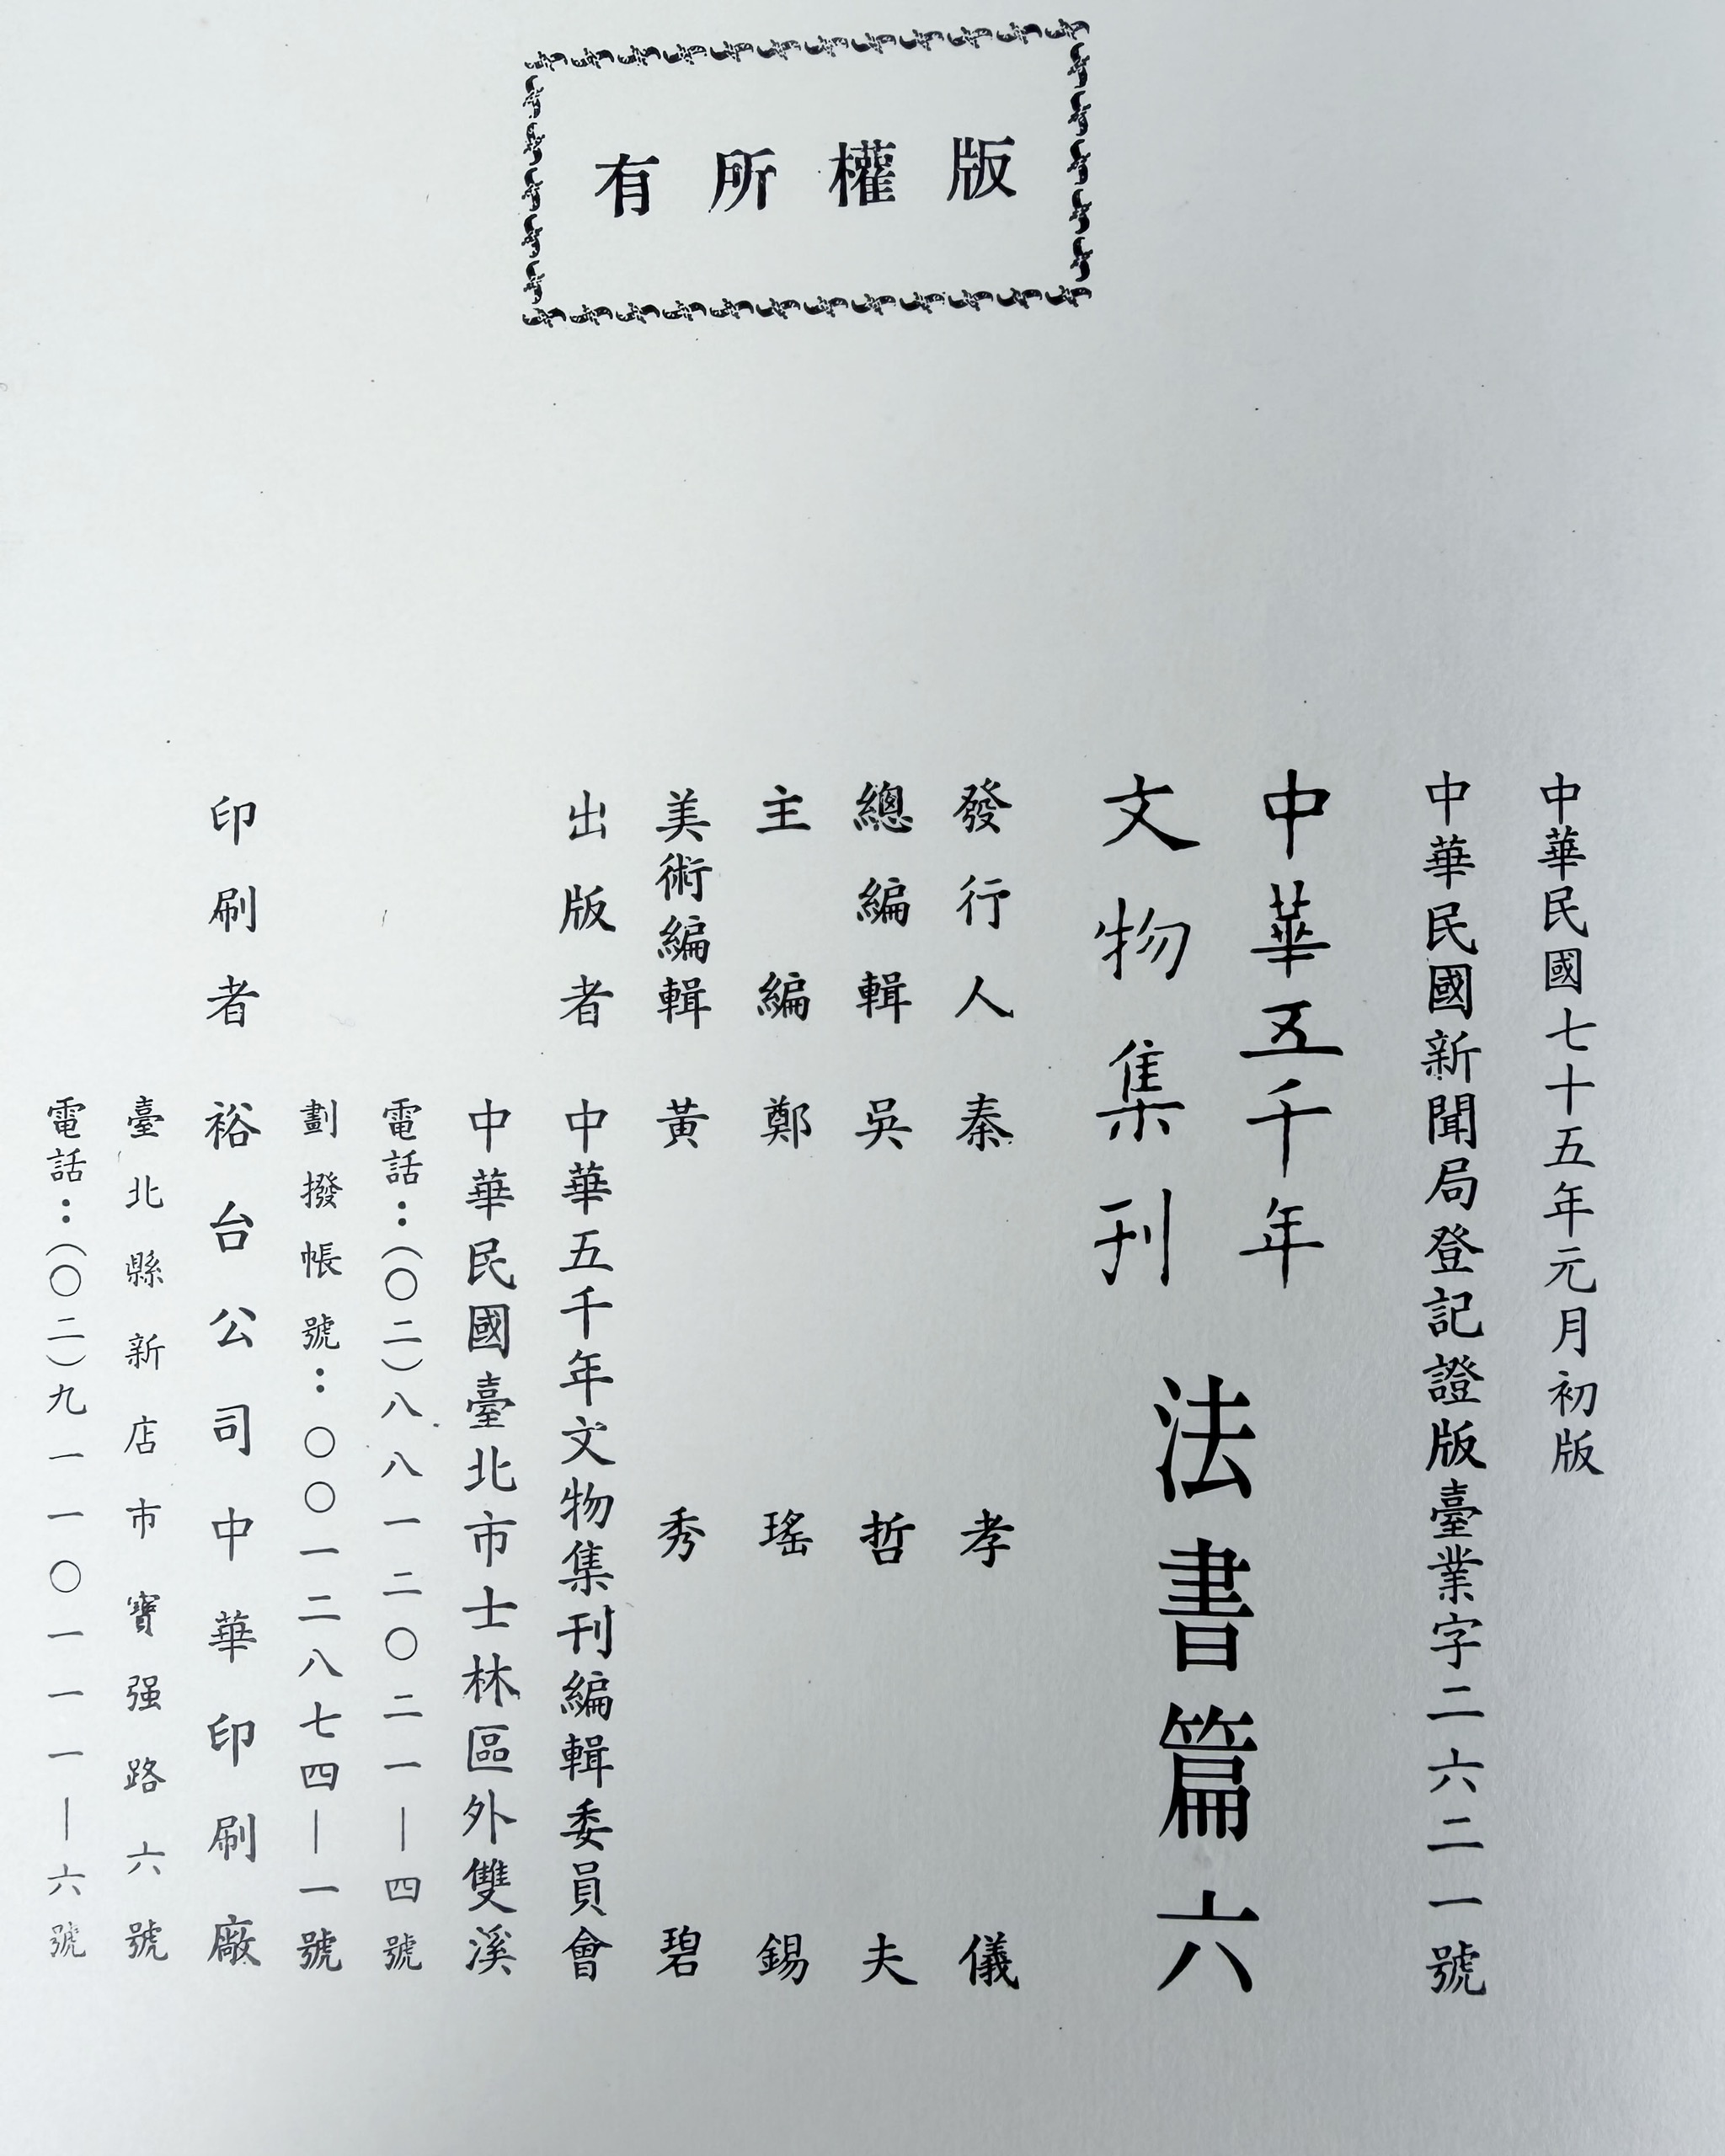 版權所有
中華民國七十五年元月初版
中華民國新聞局登記證版臺業字二六二一號
中華五千年
文物集刊
法書篇六
發行人 秦孝儀
總編輯 吳哲夫
主編 鄭瑤錫
美術編輯 黃秀碧
出版者 中華五千年文物集刊編輯委員會
中華民國臺北市士林區外雙溪
電話：（〇二）八八一二〇二一｜四號
劃撥帳號：〇〇一二八七四｜一號
印刷者 裕台公司中華印刷廠
臺北縣新店市寶强路六號
電話：（〇二）九一一〇一一一｜六號